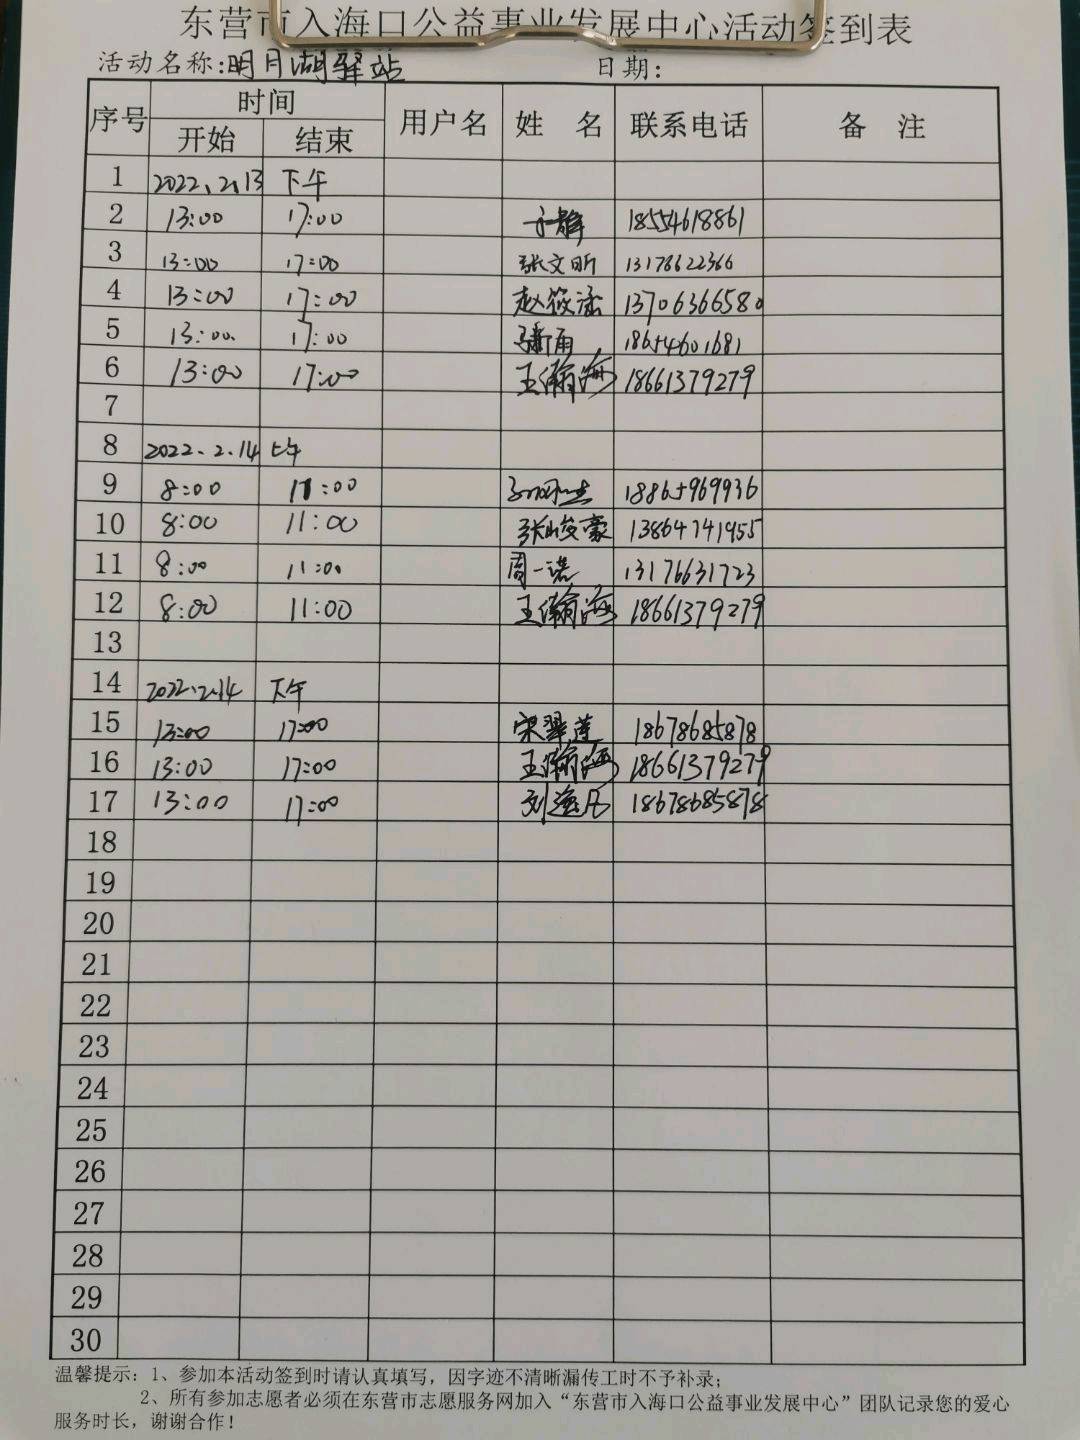 东营市入海口公益事业发展中心活动签到表
活动名称:明月湖驿站 日期:
序号 时间 用户名 姓 名 联系电话 备 注
开始 结束
1 2022、2.13 下午
2 13:00 17:00 于静 18554618861
3 13:00 17:00 张文昕 13178622366
4 13:00 17:00 赵筱涵 13706366580
5 13:00 17:00 18654601681
6 13:00 17:00 王瀚海 18661379279
7
8 2022、2.14 上午
9 8:00 11:00 18865969936
10 8:00 11:00 张峻豪 13864741955
11 8:00 11:00 周一诺 13176631723
12 8:00 11:00 王瀚海 18661379279
13
14 2022.2.14 下午
15 13:00 17:00 宋翠莲 18678685878
16 13:00 17:00 王瀚海 18661379279
17 13:00 17:00 刘 18678685878
18
19
20
21
22
23
24
25
26
27
28
29
30
温馨提示: 1、参加本活动签到时请认真填写，因字迹不清晰漏传工时不予补录;
2、所有参加志愿者必须在东营市志愿服务网加入“东营市入海口公益事业发展中心”团队记录您的爱心
服务时长，谢谢合作!